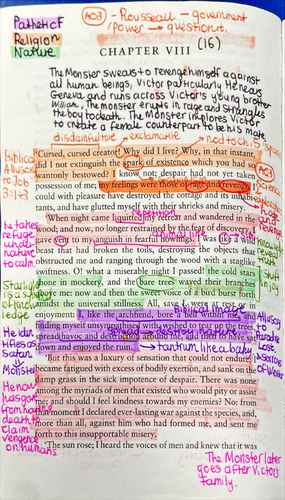 Pathetic F
Religion
Nature
AO3 - Rousseau - government
/power → question it.
CHAPTER VIII (16)
The Monster swears to revenge himself against
all human beings, Victor particularly. He nears
Geneva and runs across Victor's young brother
William, The monster erupts in rage and strangles
the boy to death. The Monster implores Victor
to create a female counterpart to be his mate.
exclamative
'Cursed, cursed creator! Why did I live? Why, in that instant,
did I not extinguish the spark of existence which you had so
wantonly bestowed? I know not; despair had not yet taken
possession of me; my feelings were those of rage and revenge. I
could with pleasure have destroyed the cottage and its inhabitants,
and have glutted myself with their shrieks and misery.
repetition
'When night came I quitted my retreat and wandered in the
wood; and now, no longer restrained by the fear of discovery, I
gave vent to my anguish in fearful howlings. I was like a wild
beast that had broken the toils, destroying the objects that
obstructed me and ranging through the wood with a staglike
swiftness. O! what a miserable night I passed! the cold stars
shone in mockery, and the bare trees waved their branches
above me: now and then the sweet voice of a bird burst forth
amidst the universal stillness. All, save I, were at rest or in
enjoyment: I, like the archfiend, bore a hell within me, and
finding myself unsympathised with, wished to tear up the trees,
spread havoc and destruction around me, and then to have sat
down and enjoyed the ruin.
'But this was a luxury of sensation that could not endure; I
became fatigued with excess of bodily exertion, and sank on the
damp grass in the sick impotence of despair. There was none
among the myriads of men that existed who would pity or assist
me; and should I feel kindness towards my enemies? No: from
that moment I declared ever-lasting war against the species, and,
more than all, against him who had formed me, and sent me
forth to this insupportable misery.
'The sun rose; I heard the voices of men and knew that it was
biblical
Allusion
to Job
3:1-3
He takes
refuge
in
nature
to calm
Biblical image
Allusion
to Paradise
Lost
tantrum like a baby
The Monster later
goes after Victor's
family.